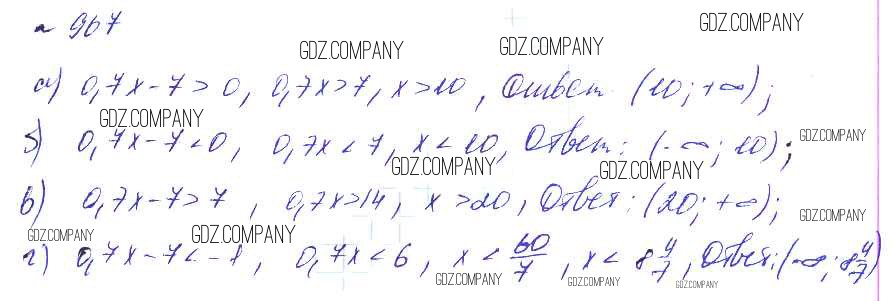 № 967
GDZ.COMPANY GDZ.COMPANY GDZ.COMPANY
а) 0,7x - 7 > 0, 0,7x > 7, x > 10, Ответ (10; +∞);
GDZ.COMPANY
б) 0,7x - 7 < 0, 0,7x < 7, x < 10, Ответ: (-∞; 10);
GDZ.COMPANY GDZ.COMPANY GDZ.COMPANY
в) 0,7x - 7 > 7, 0,7x > 14, x > 20, Ответ: (20; +∞);
GDZ.COMPANY GDZ.COMPANY GDZ.COMPANY
г) 0,7x - 7 < -1, 0,7x < 6, x < 60/7, x < 8 4/7, Ответ: (-∞; 8 4/7)
GDZ.COMPANY GDZ.COMPANY